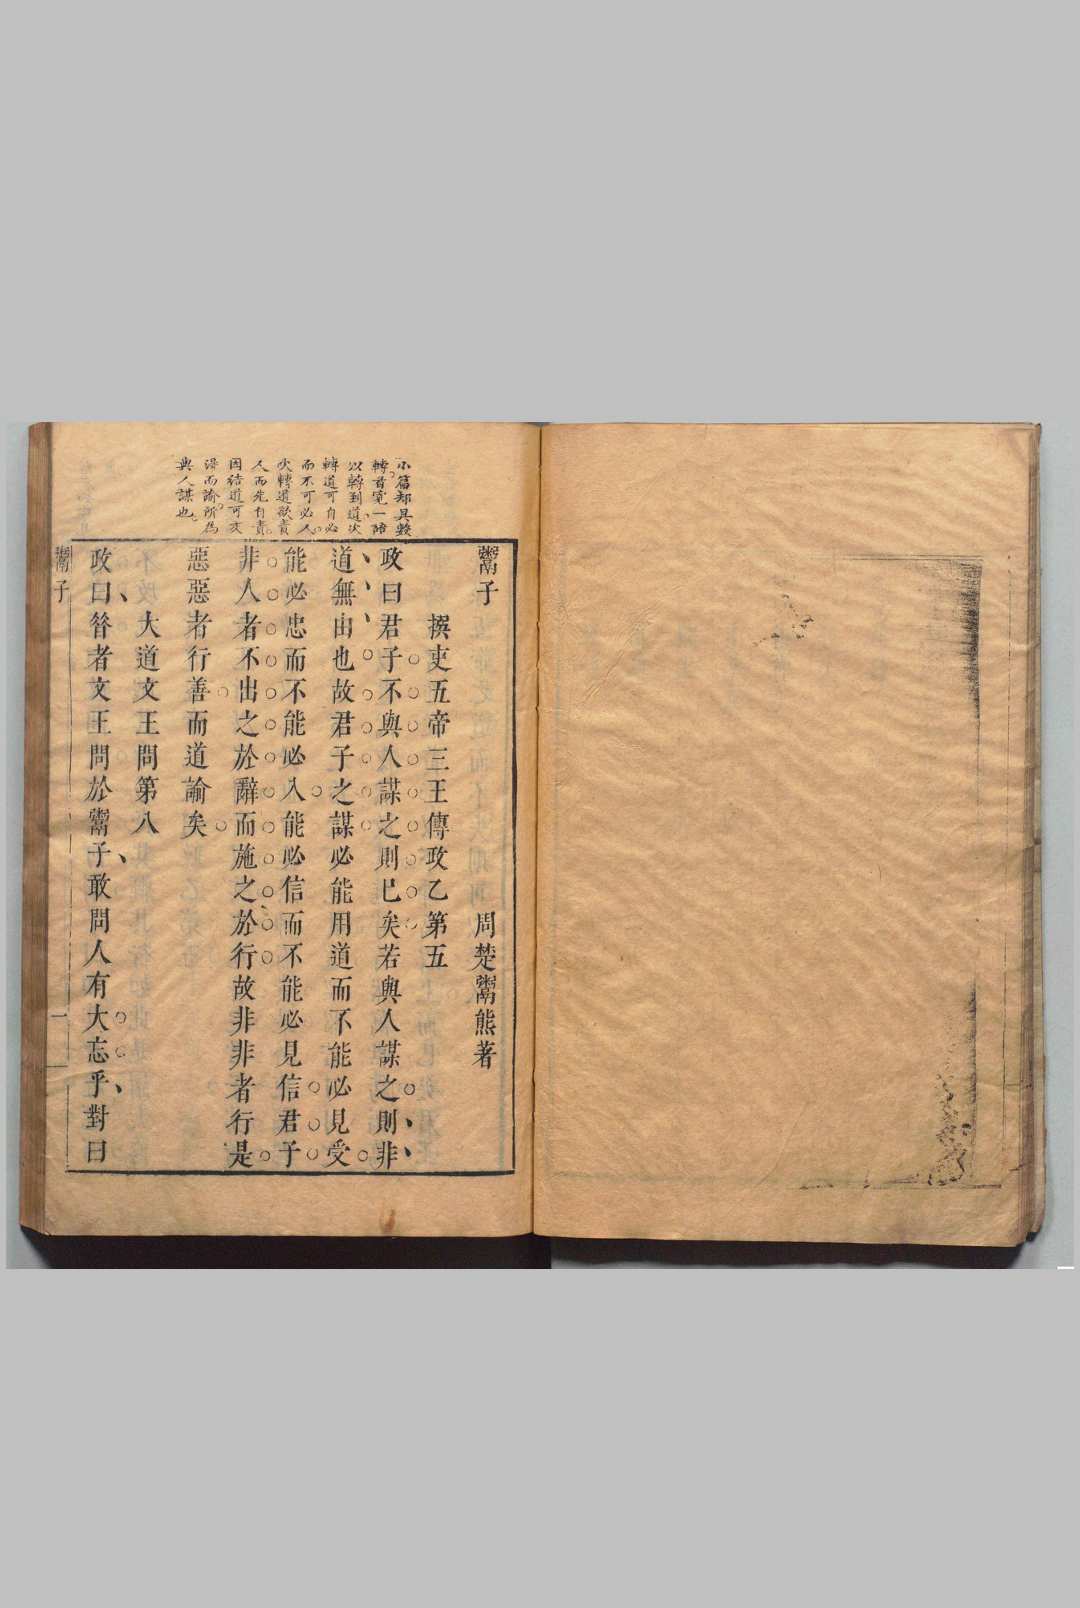 小篇却具數
轉首冕一語
以轉到道次
轉道可自必
而不可必人
次轉道欲責
人而先自責
因結道可交
得而諭所為
與人謀也
鬻子
周楚鬻熊著
撰吏五帝三王傳政乙第五
政曰君子不與人謀之則已矣若與人謀之則非
道無由也故君子之謀必能用道而不能必見受
能必忠而不能必入能必信而不能必見信君子
非人者不出之於辭而施之於行故非非者行是
惡惡者行善而道諭矣
大道文王問第八
政曰昝者文王問於鬻子敢問人有大忘乎對曰
鬻子
一